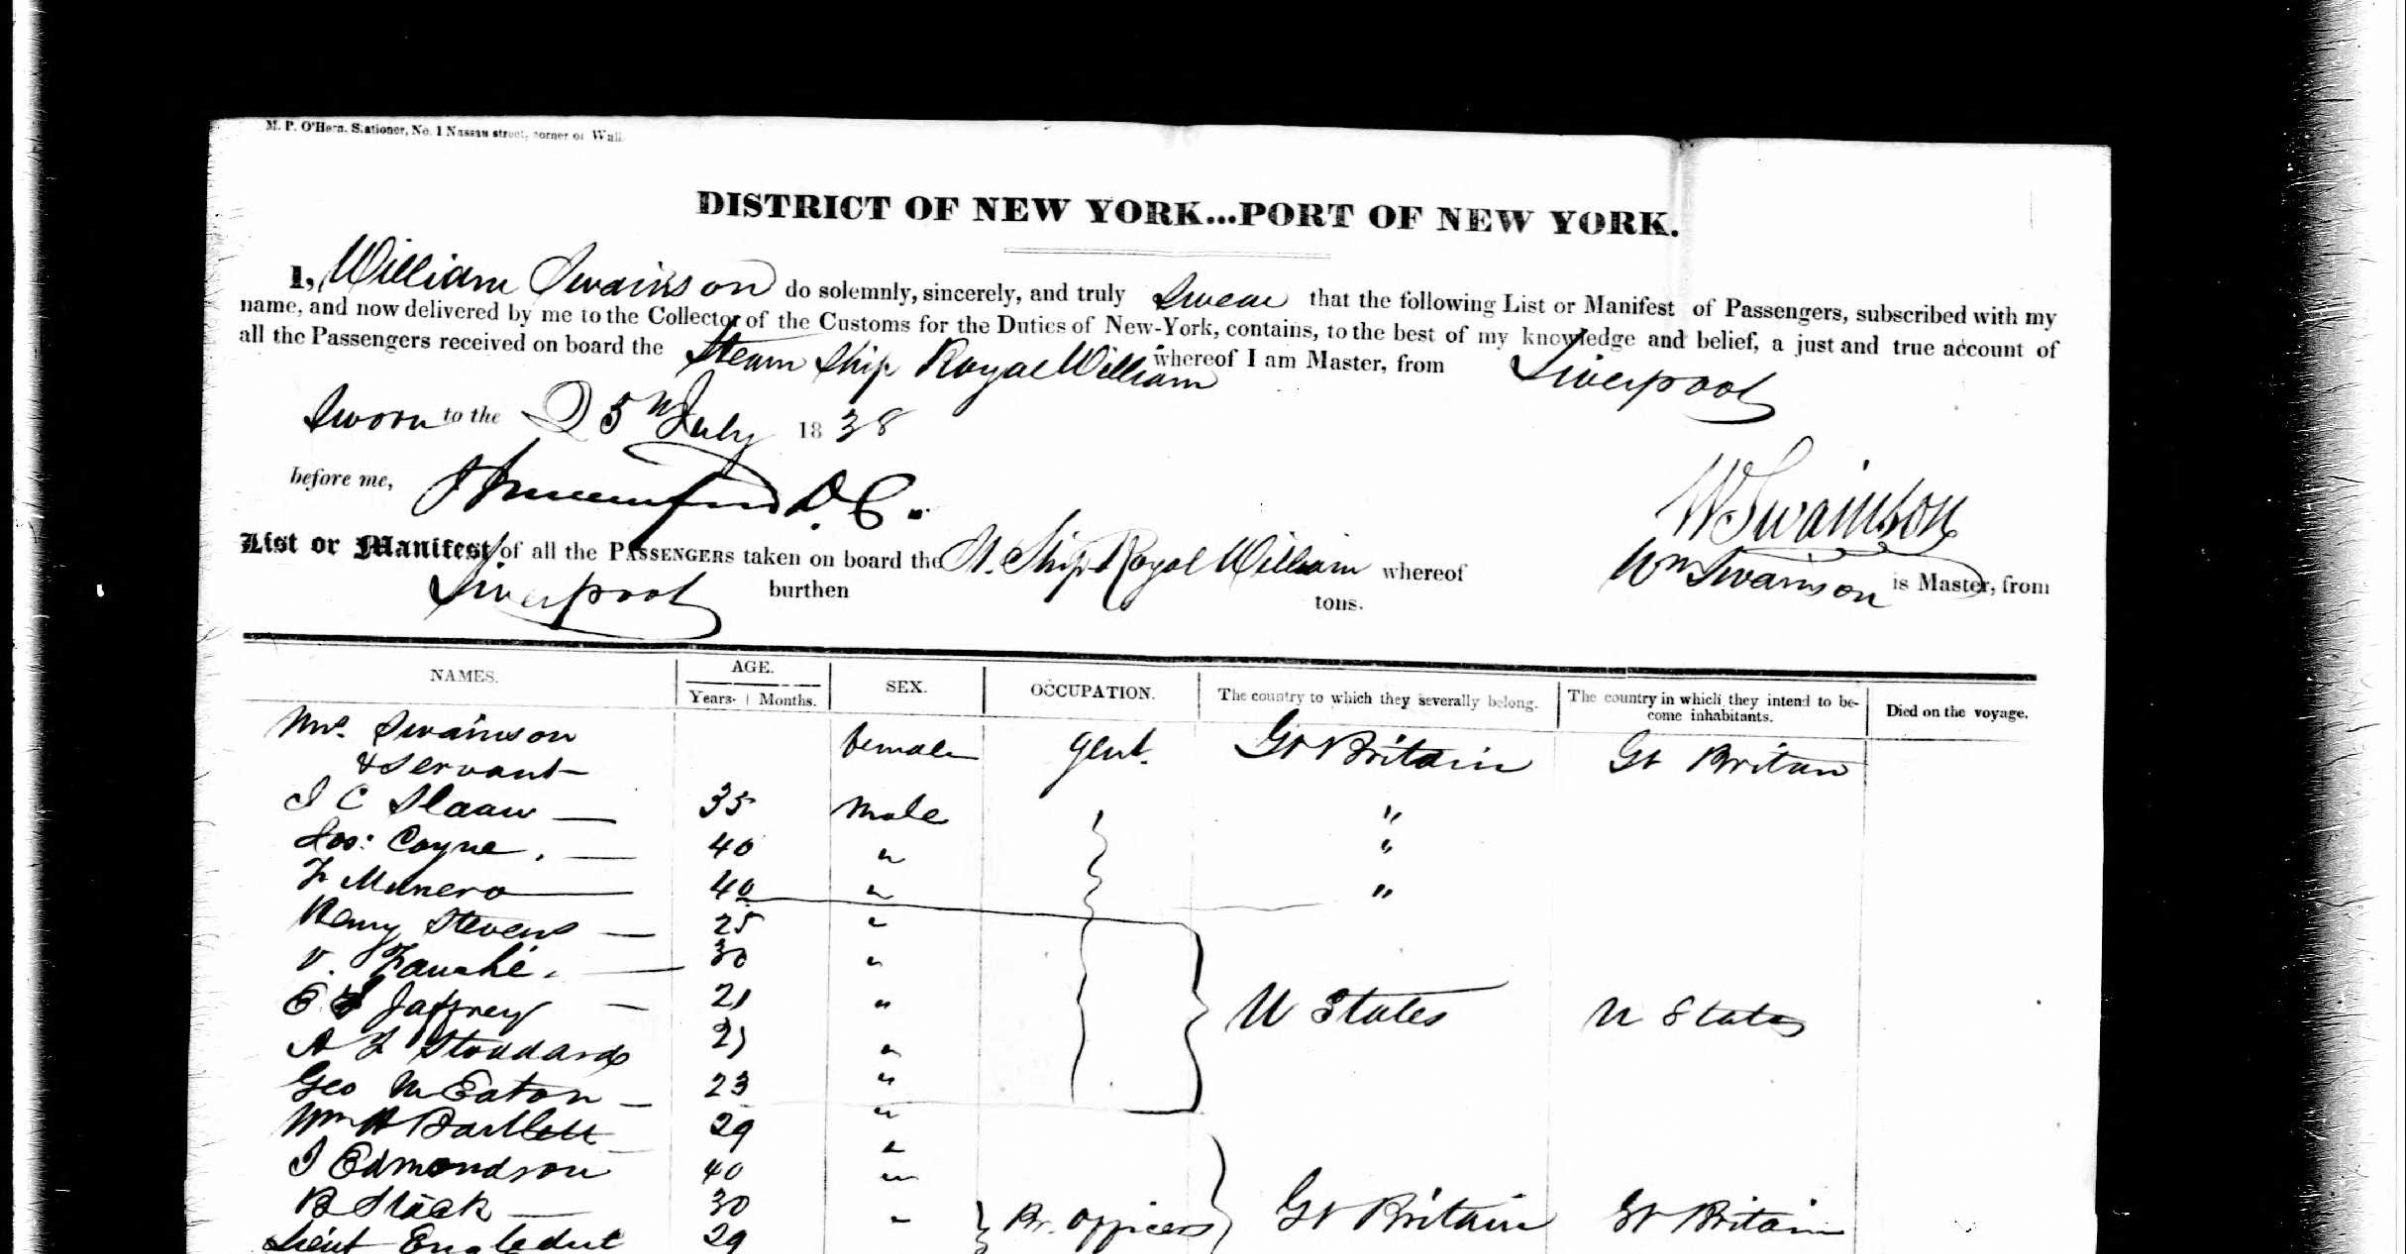 M. P. O'Hern, Stationer, No. 1 Nassau street, corner of Wall.
DISTRICT OF NEW YORK...PORT OF NEW YORK.
I, William Swainson do solemnly, sincerely, and truly Swear that the following List or Manifest of Passengers, subscribed with my
name, and now delivered by me to the Collector of the Customs for the Duties of New-York, contains, to the best of my knowledge and belief, a just and true account of
all the Passengers received on board the Steam Ship Royal William whereof I am Master, from Liverpool
Sworn to the 25th July 1838
before me, D. C.
W Swainson
List or Manifest of all the PASSENGERS taken on board the St. Ship Royal William whereof Wm Swainson is Master, from
Liverpool burthen tons.
NAMES. AGE. SEX. OCCUPATION. The country to which they severally belong. The country in which they intend to be- Died on the voyage.
Years. Months. come inhabitants.
Mrs. Swainson female Gent. Gt Britain Gt Britain
& Servant
J C 35 male "
Jos: Coyne. 40 " "
F Munero 40 " "
Henry Stevens 25 "
V. 30 "
E Jaffrey 21 " U States U States
A Stoddard 21 "
Geo M Eaton 23 "
Wm H Bartlett 29 "
J Edmondson 40 "
B Slack 30 " Br. Officers Gt Britain Gt Britain
Lieut Engledut 29